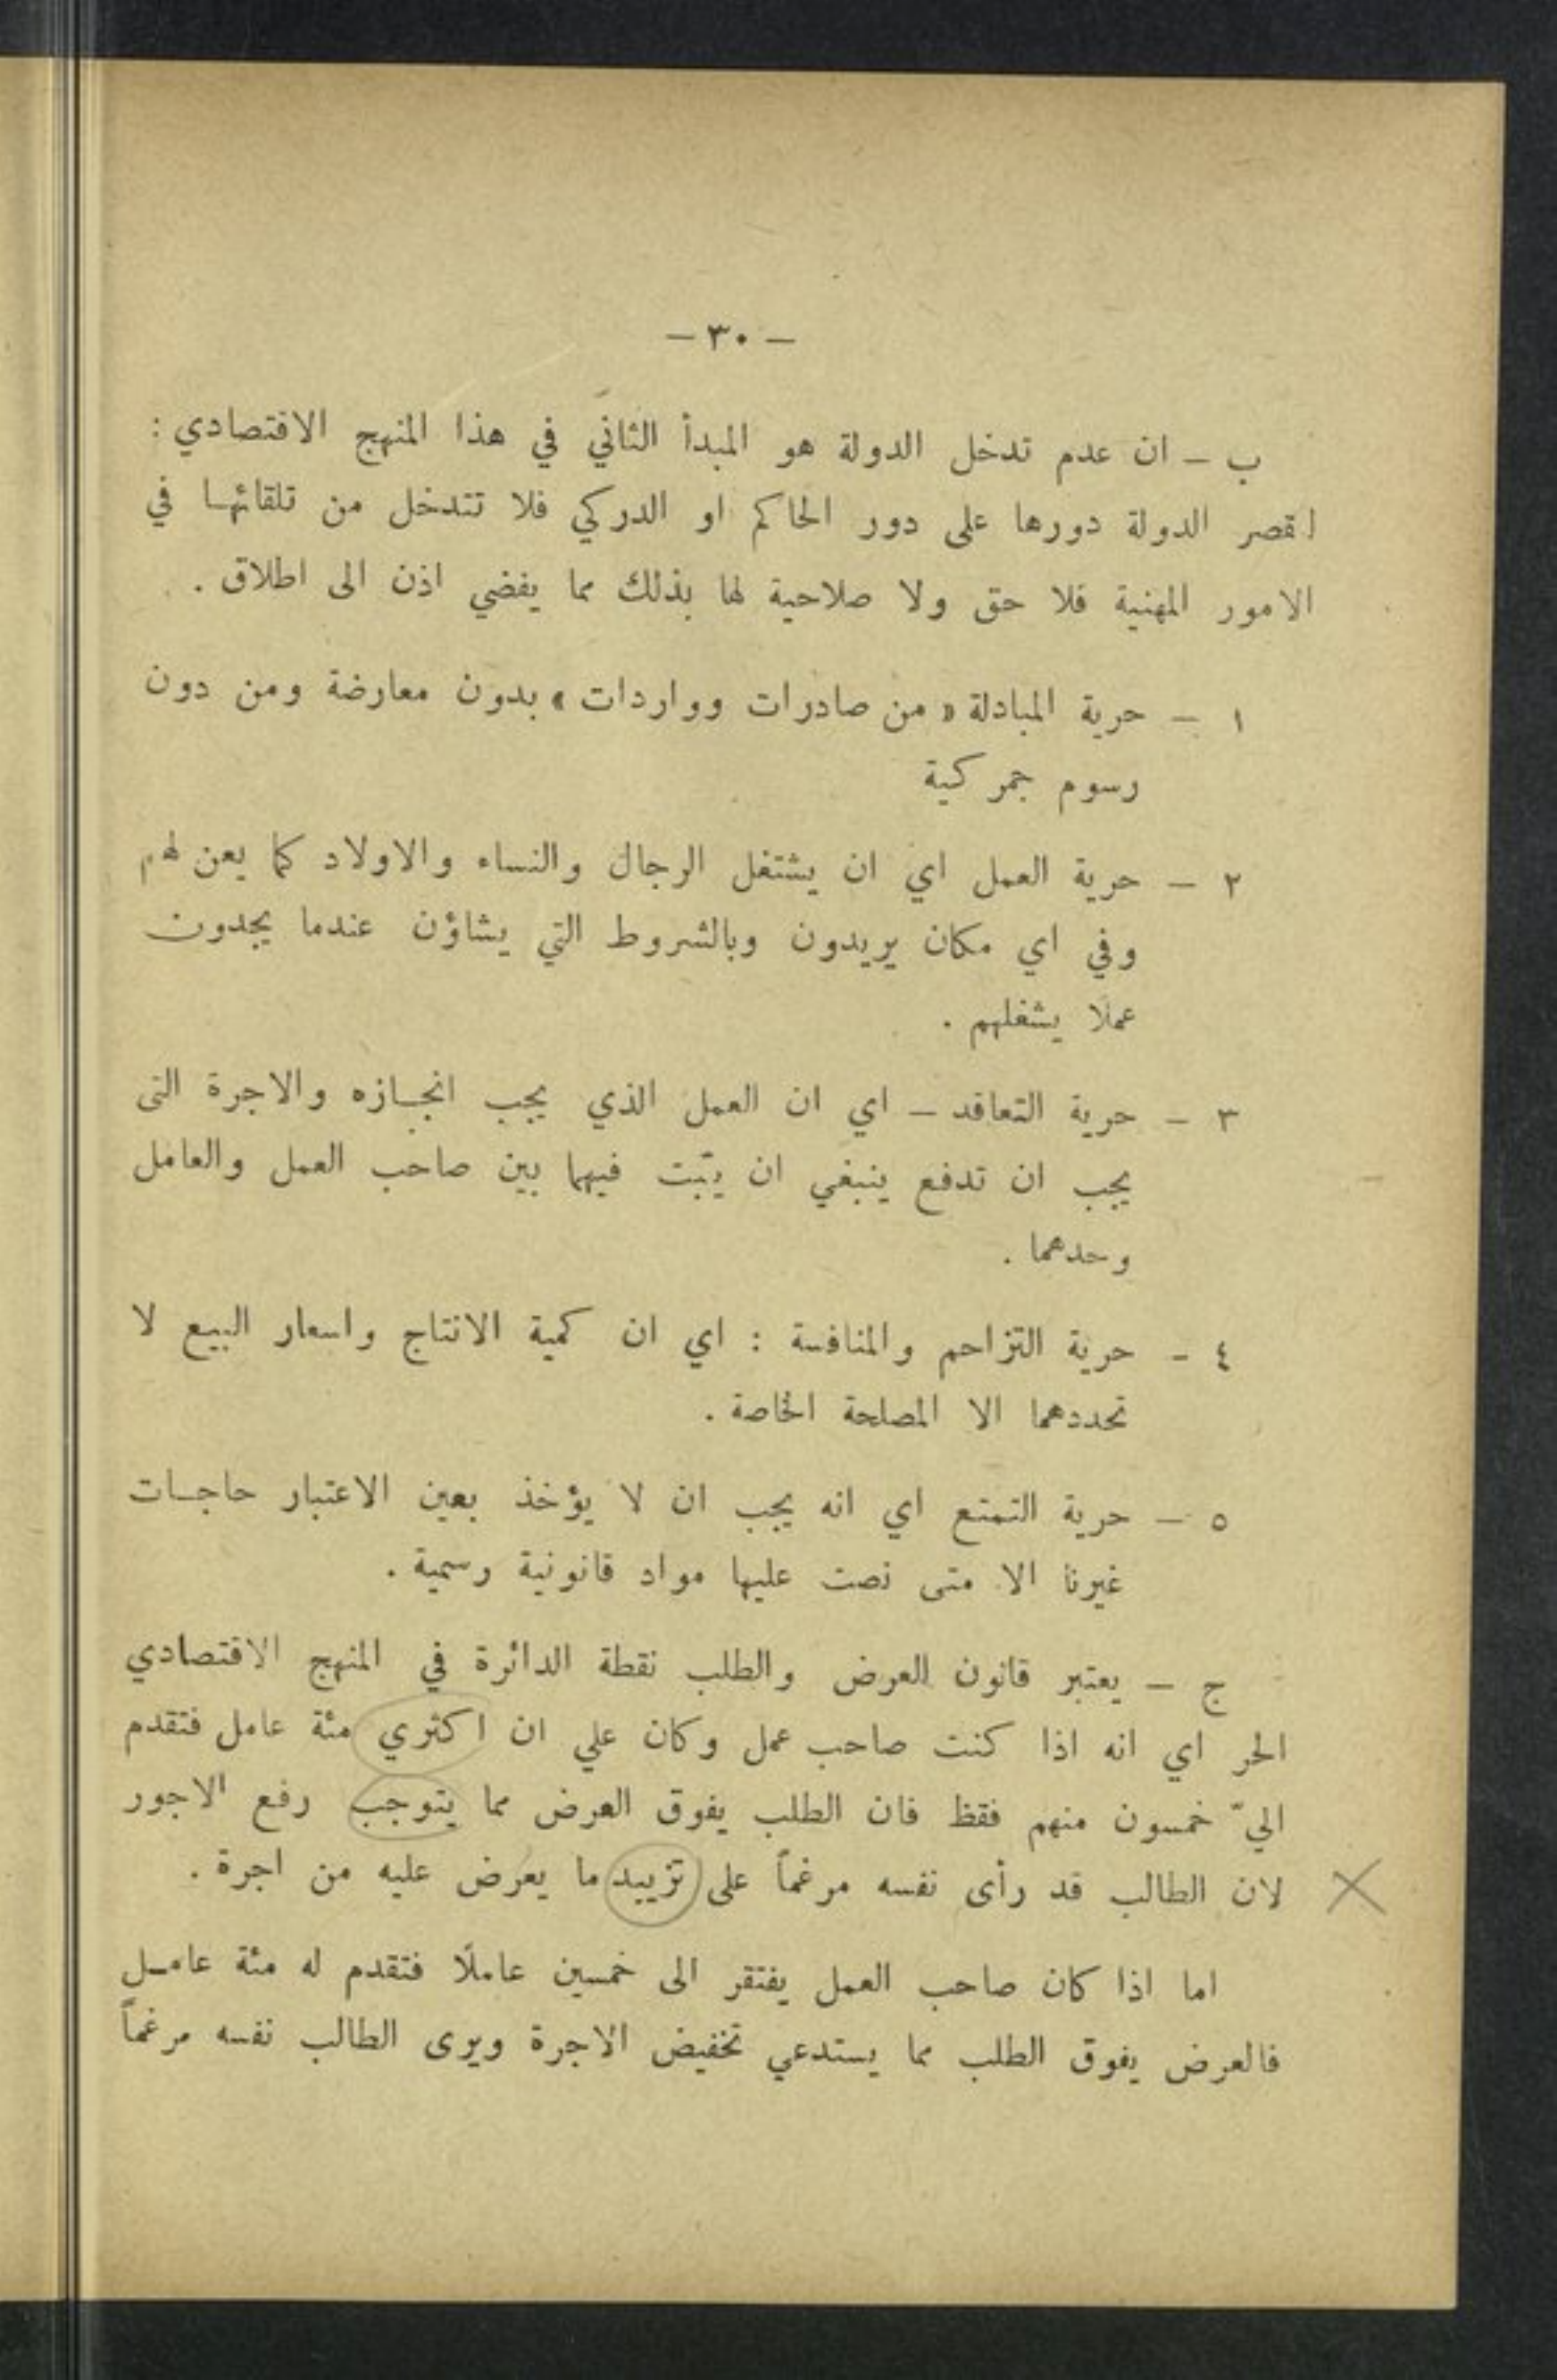 — ٣٠ —
ب — ان عدم تدخل الدولة هو المبدأ الثاني في هذا المنهج الاقتصادي :
اقصر الدولة دورها على دور الحاكم او الدركي فلا تتدخل من تلقائها في
الامور المهنية فلا حق ولا صلاحية لها بذلك مما يفضي اذن الى اطلاق .
١ — حرية المبادلة « من صادرات وواردات » بدون معارضة ومن دون
رسوم جمركية
٢ — حرية العمل اي ان يشتغل الرجال والنساء والاولاد كما يعن لهم
وفي اي مكان يريدون وبالشروط التي يشاؤن عندما يجدون
عملا يشغلهم .
٣ — حرية التعاقد — اي ان العمل الذي يجب انجازه والاجرة التي
يجب ان تدفع ينبغي ان يتبت فيهما بين صاحب العمل والعامل
وحدهما .
٤ — حرية التزاحم والمنافسة : اي ان كمية الانتاج واسعار البيع لا
تحددهما الا المصلحة الخاصة .
٥ — حرية التمتع اي انه يجب ان لا يؤخذ بعين الاعتبار حاجات
غيرنا الا متى نصت عليها مواد قانونية رسمية .
ج — يعتبر قانون العرض والطلب نقطة الدائرة في المنهج الاقتصادي
الحر اي انه اذا كنت صاحب عمل وكان علي ان اكثري مئة عامل فتقدم
اليّ خمسون منهم فقظ فان الطلب يفوق العرض مما يتوجب رفع الاجور
لان الطالب قد رأى نفسه مرغماً على تزييد ما يعرض عليه من اجرة .
اما اذا كان صاحب العمل يفتقر الى خمسين عاملًا فتقدم له مئة عامل
فالعرض يفوق الطلب مما يستدعي تخفيض الاجرة ويرى الطالب نفسه مرغماً